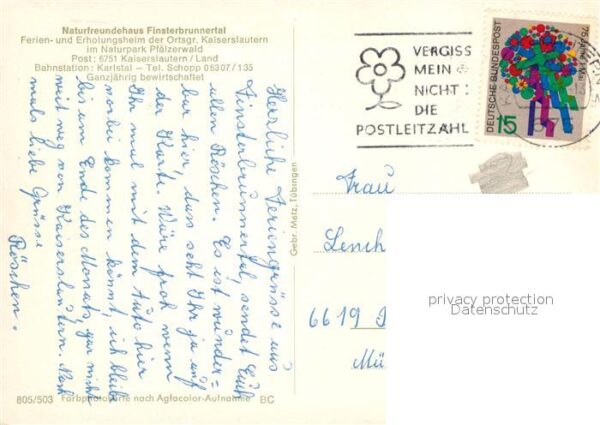 Naturfreundehaus Finsterbrunnertal
Ferien- und Erholungsheim der Ortsgr. Kaiserslautern
im Naturpark Pfälzerwald
Post: 6751 Kaiserslautern / Land
Bahnstation: Karlstal — Tel. Schopp 06307 / 135
Ganzjährig bewirtschaftet
Herzliche Feriengrüsse aus
Finsterbrunnertal, sendet Euch
allen Röschen. Es ist wunder=
bar hier, dass seht Ihr ja auf
der Karte. Wäre froh wenn
Ihr mal mit dem Auto hier
vorbei kommen könnt, ich bleibe
bis am Ende des Monats, gar nicht
weit weg von Kaiserslautern. Noch
mals liebe Grüsse
Röschen.
805/503 Farbphotokarte nach Agfacolor-Aufnahme BC
Gebr. Metz, Tübingen
VERGISS
MEIN
NICHT:
DIE
POSTLEITZAHL
DEUTSCHE BUNDESPOST
75 Jahre 1. Mai
15
Frau
Lench
6619
Mü
privacy protection
Datenschutz